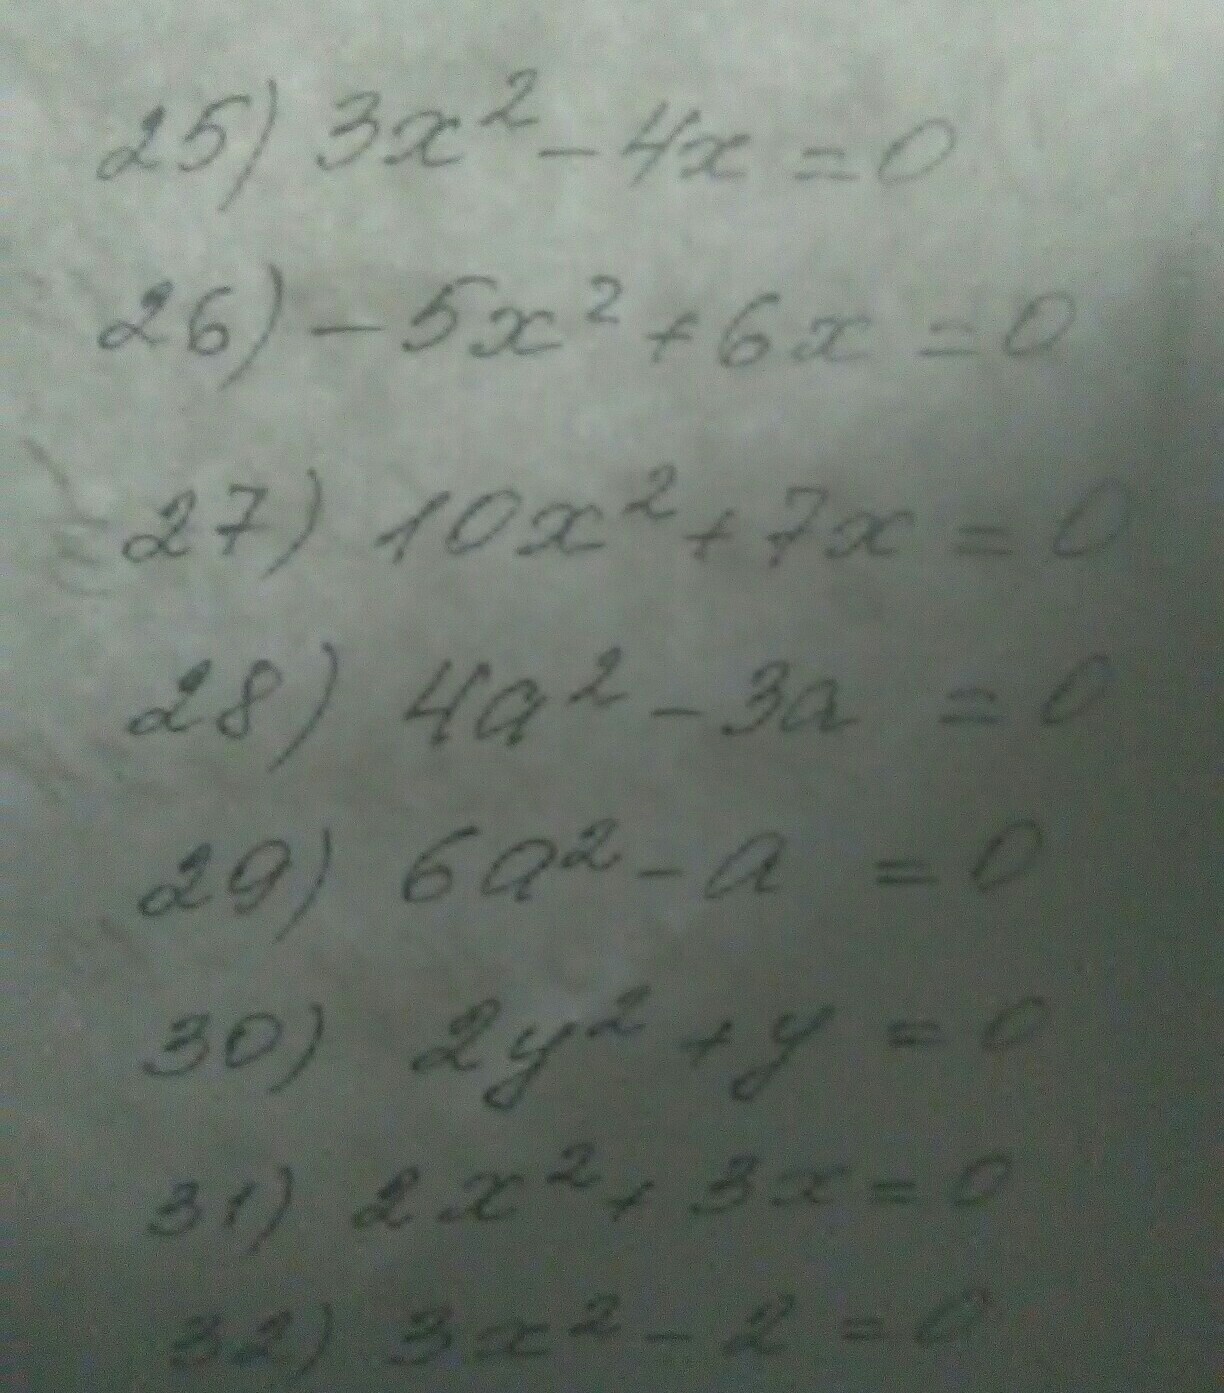 25) 3x² - 4x = 0
26) - 5x² + 6x = 0
27) 10x² + 7x = 0
28) 4a² - 3a = 0
29) 6a² - a = 0
30) 2y² + y = 0
31) 2x² + 3x = 0
32) 3x² - 2 = 0